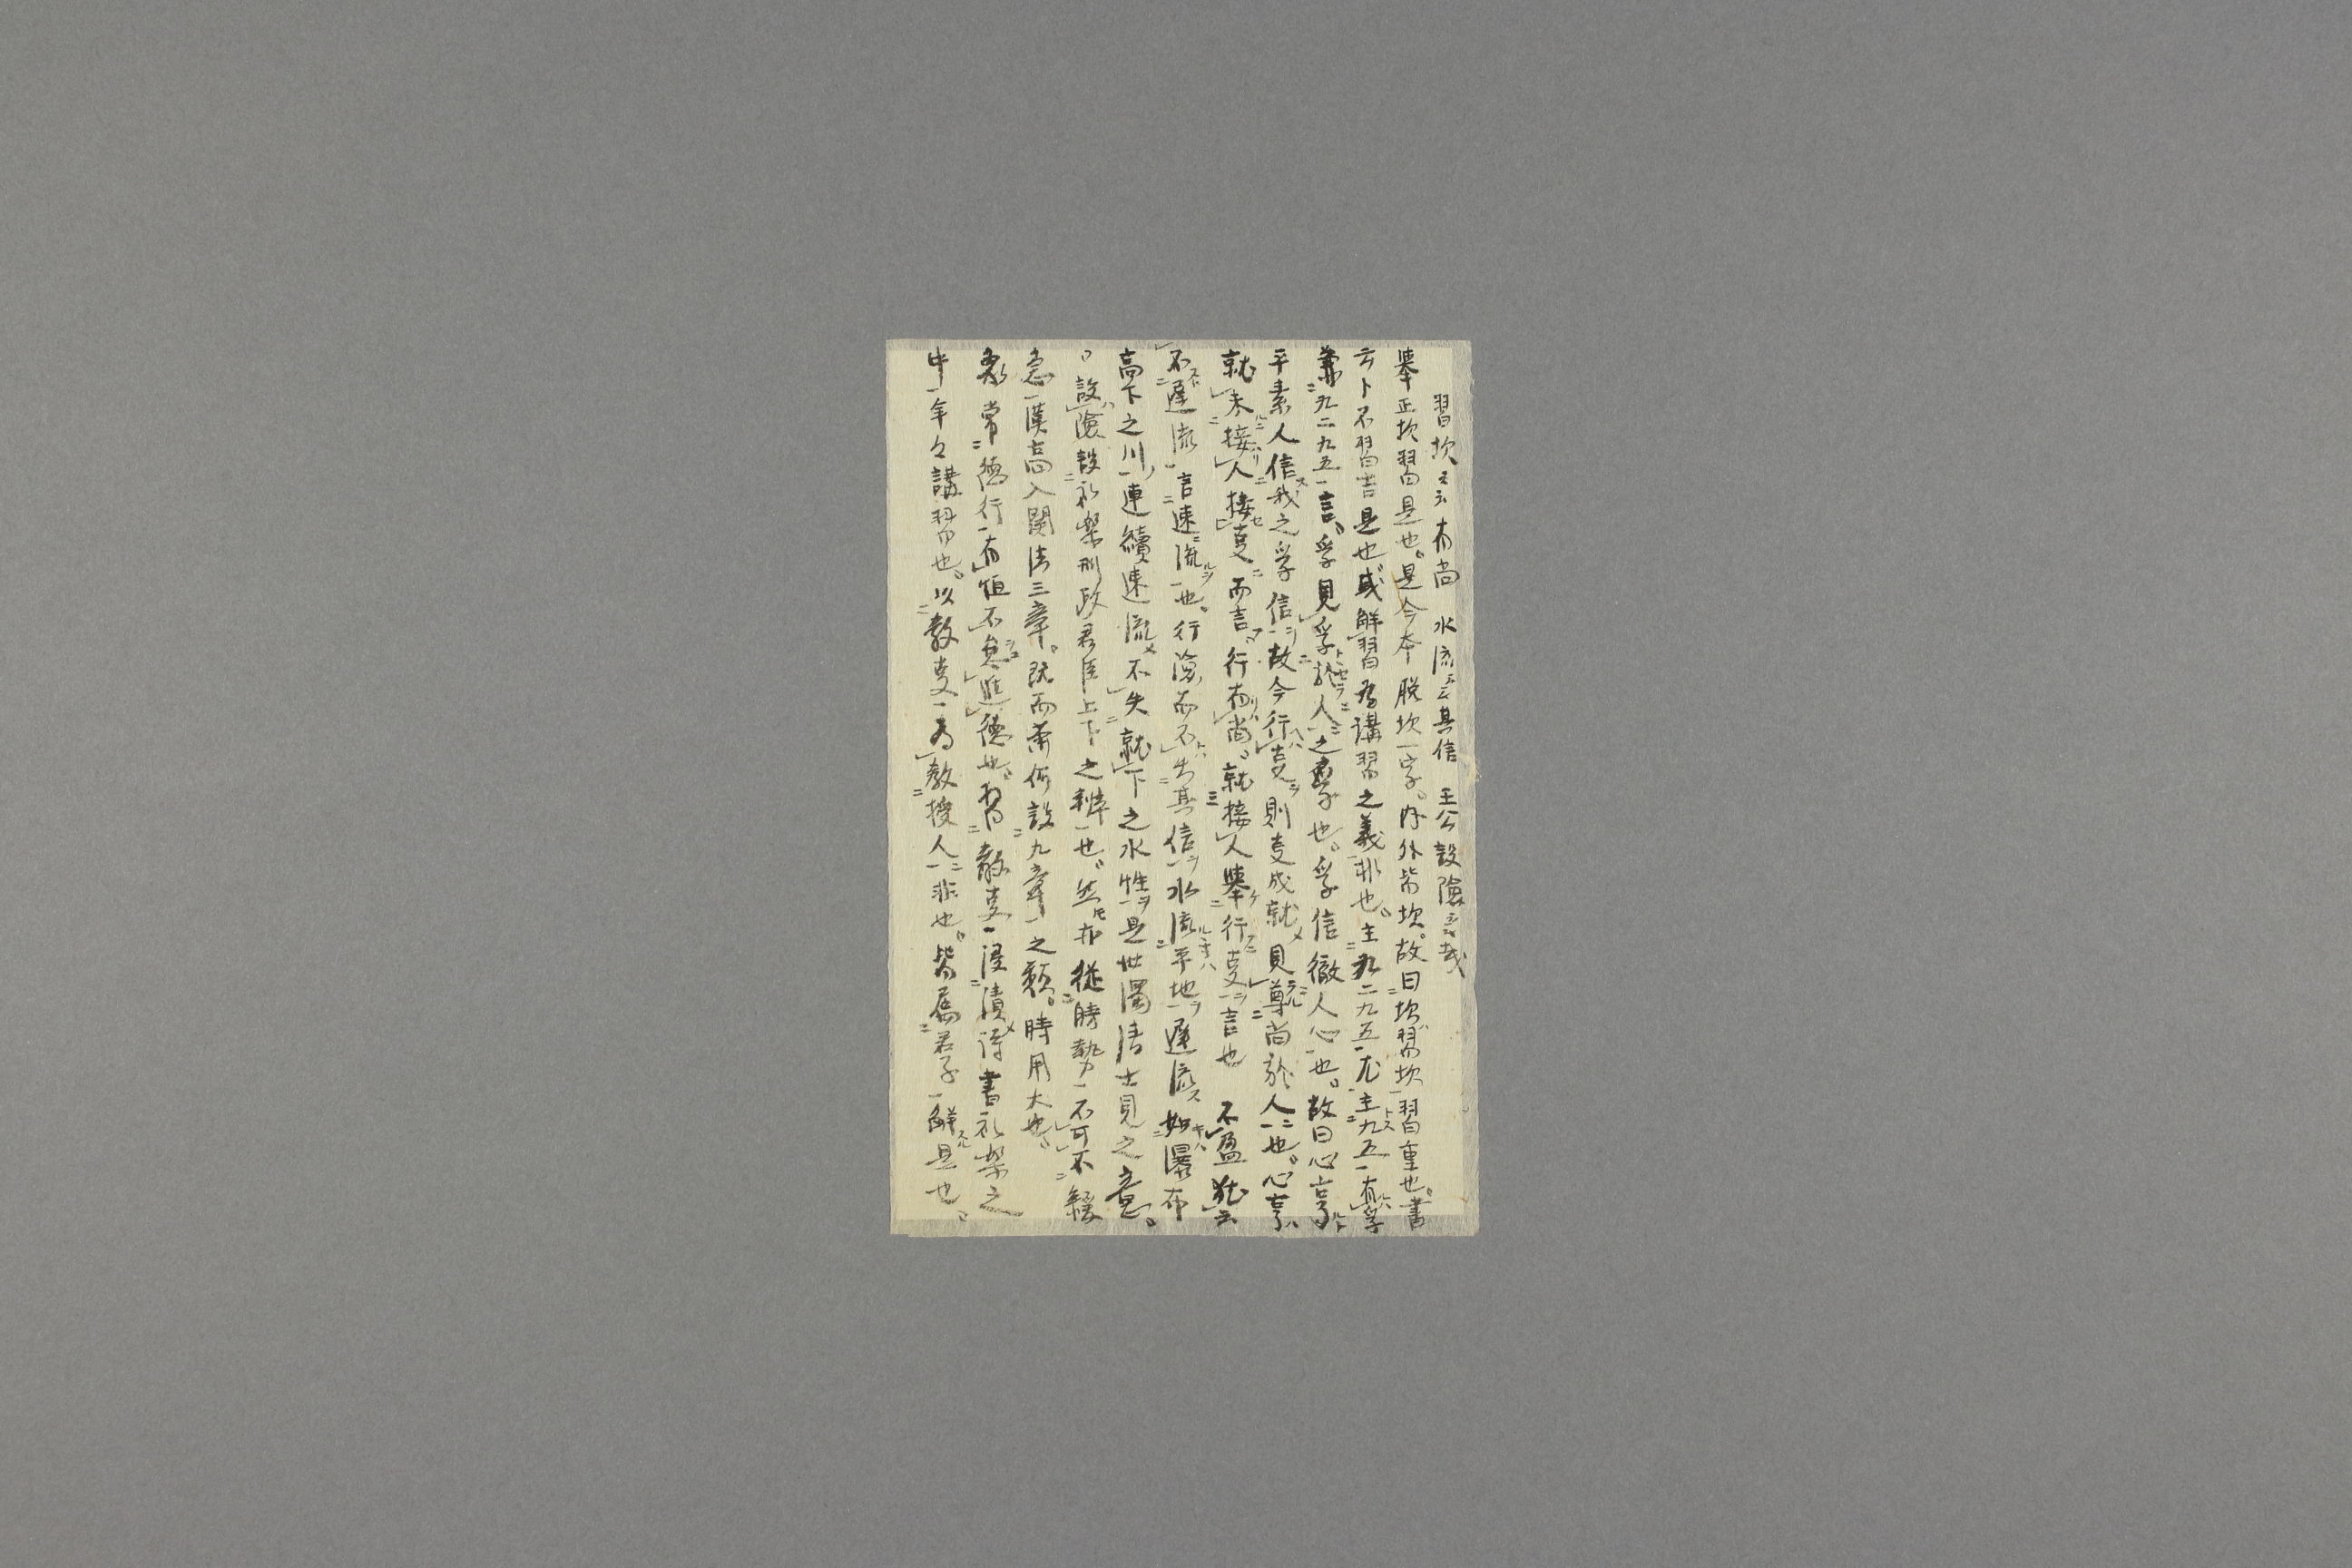 習坎云云有尚 水流云云其信 王公設險云云哉
舉正坎習是也。是今本脱坎一字。内外皆坎。故曰坎習坎一習重也。書
云卜不習吉是也或解習為講習之義非也。主九二九五一尤主九五一有孚
兼九二九五一言。孚見孚於人之象也。孚信徹人心也。故曰心亨
平素人信我之孚信故今行事則事成就見尊尚於人也。心亨
就未接人接事而言。行有尚。就接人舉行事言也 不盈猶云
不遲流一言速流一也。行險而不失其信水流平地遲流如瀑布
高下之川連續速流不失就下之水性是世濁清士見之意。
設險設礼樂刑政君臣上下之辨一也。然亦從時勢一不可不緩
急一漢高入関法三章。既而蕭何設九章一之類。時用大也
象 常德行一有恒不息進德也。習教事一浸漬詩書礼樂之
中一年々講習也。以教事一為教授人非也。皆属君子一解是也。